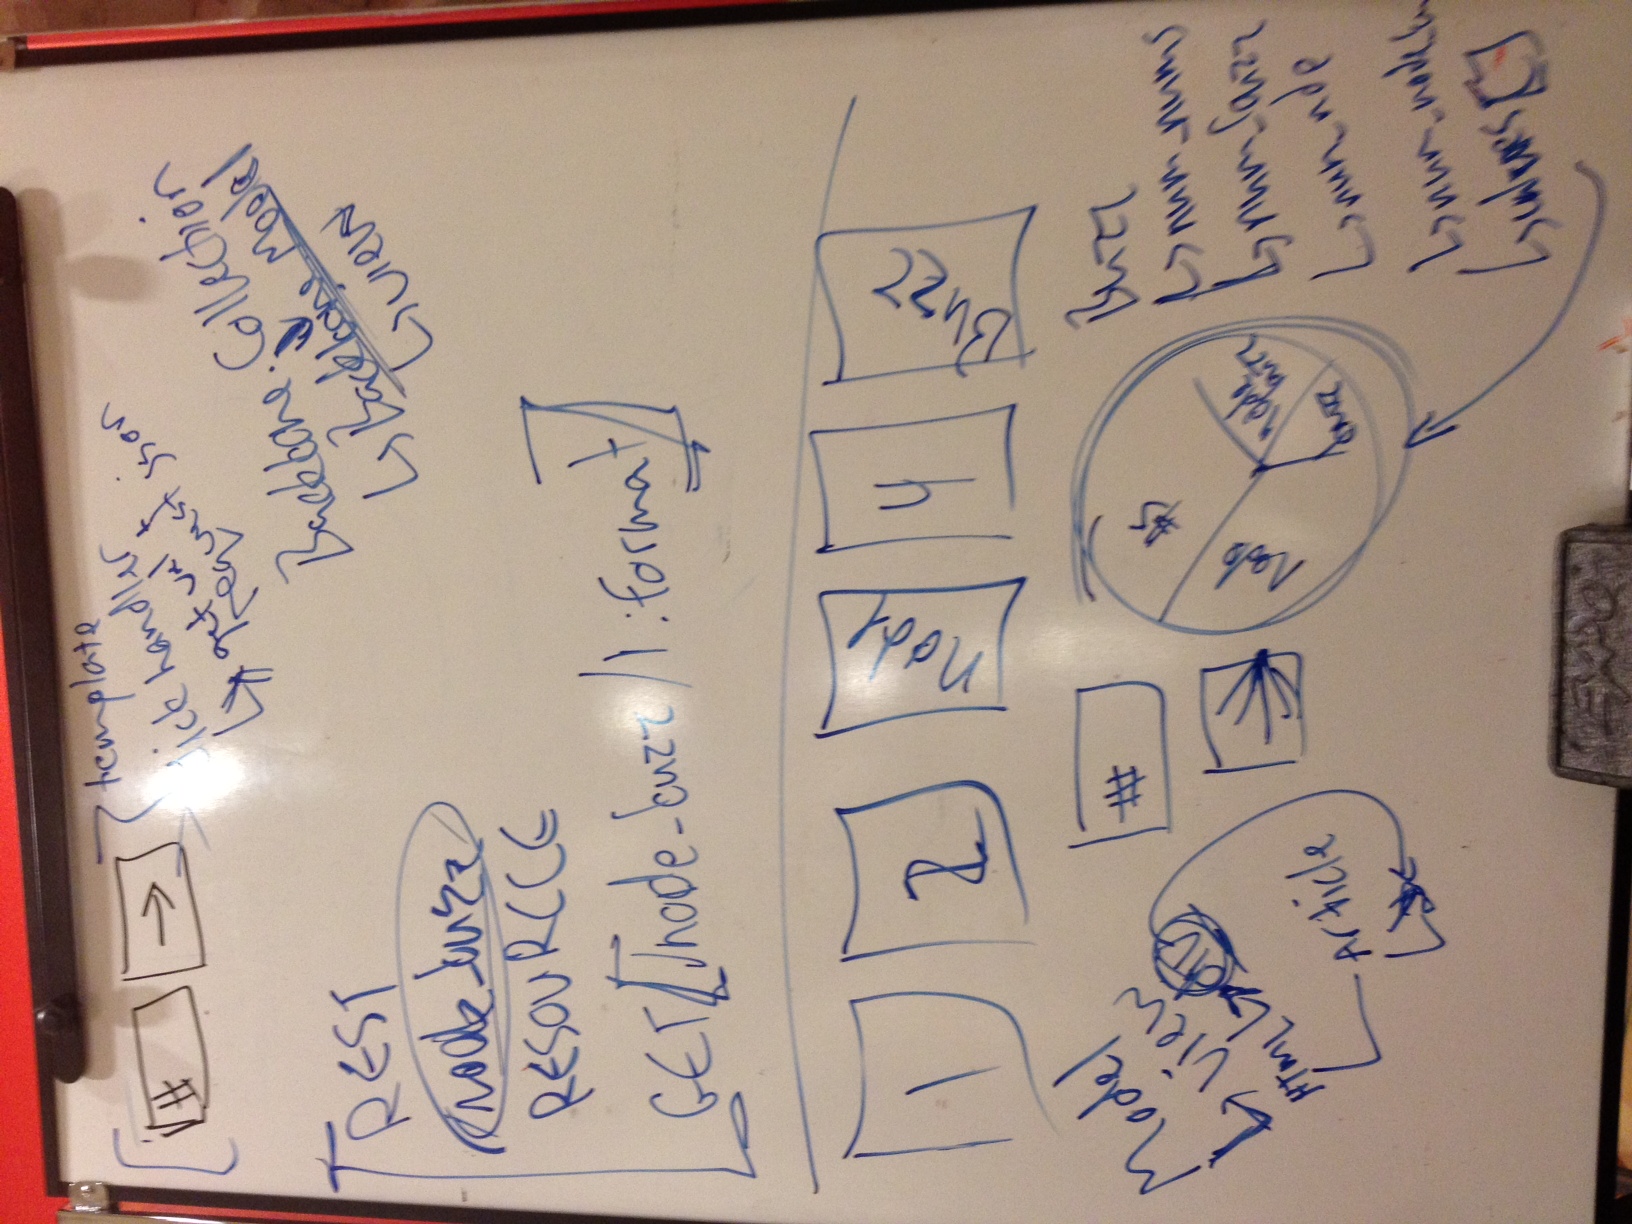 #
→
template
click handler
↳ get val +
request json
Backbone.Collection
↳ Backbone.Model
↳ view
REST
node_buzz
RESOURCCE
GET /node_buzz/1.:format
1
2
Node
4
Buzz
Model
↳ view
HTML ↳ div
Article
#
#s
Node
node
buzz
buzz
Buzz
↳ num_nums
↳ num_buzz
↳ num_node
↳ num_node_bu
↳ values []
EXPO